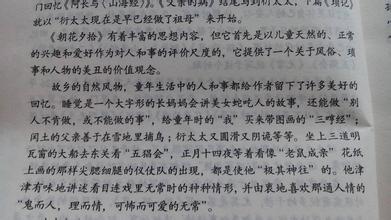 门回忆《阿长与〈山海经〉》。《父亲的病》结尾写到衍太太,下篇《琐记》
就以“衍太太现在是早已经做了祖母”来开头。
《朝花夕拾》有着丰富的思想内容,但它首先是以儿童天然的、正常
的兴趣和爱好作为对人和事的评价尺度的,它提供了一个关于风俗、琐
事和人物的美丑的价值观念。
故乡的自然风物,童年生活中的人和事都给作者留下了许多美好的
回忆。睡觉是一个大字形的长妈妈会讲美女蛇吃人的故事,还能做“别
人不肯做,或不能做的事”,给童年时的“我”买来带图画的“三哼经”;
闰土的父亲善于在雪地里捕鸟;衍太太又圆滑又阴诡等等。坐上三道明
瓦窗的大船去东关看“五猖会”,正月十四夜等着看像“老鼠成亲”花纸
上画的那样尖腮细腿的仪仗队的出现,都是使他“极其神往”的。他津
津有味地讲述看目连戏里无常时的种种情形,并由衷地喜欢那通人情的
“鬼而人,理而情,可怖而可爱的无常”。